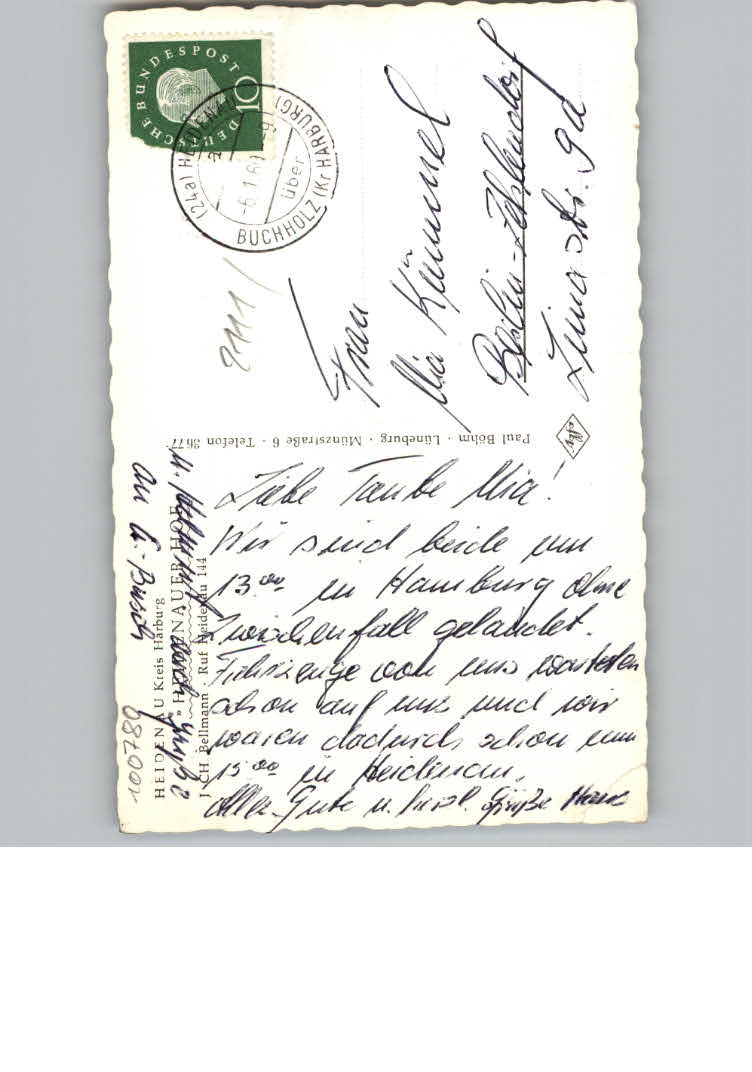 DEUTSCHE BUNDESPOST
10
(24a) HEIDENAU
über
BUCHHOLZ (Kr HARBURG)
-6.1.60
2111/
Frau
Mia Kümmel
Berlin-Zehlendorf
Limastr. 9a
Paul Böhm · Lüneburg · Münzstraße 6 · Telefon 3677
Liebe Tante Mia!
Wir sind beide um
13.00 in Hamburg ohne
Zwischenfall gelandet.
Fahrzeuge von uns warteten
schon auf uns und wir
waren dadurch schon um
15.00 in Heidenau.
Alles Gute u. herzl. Grüße Hans
HEIDENAU Kreis Harburg
» HEIDENAUER HOF
J. CH. Bellmann · Ruf Heidenau 144
u. auch Grüße
an U. Busch
100780